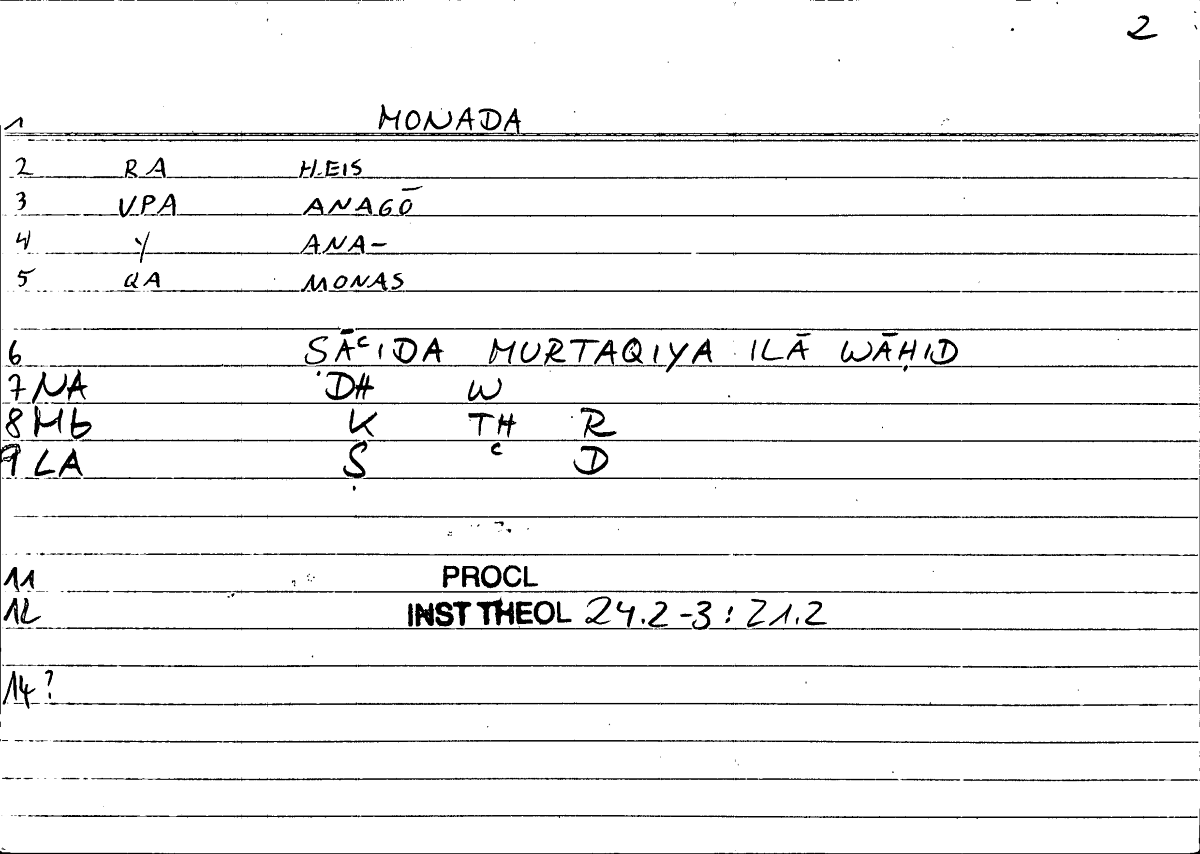 2
1 MONADA
2 RA HEIS
3 VPA ANAGŌ
4 Y ANA-
5 QA MONAS
6 ṢĀᶜIDA MURTAQIYA ILĀ WĀḤID
7 NA DH W
8 Mb K TH R
9 LA Ṣ ᶜ D
11 PROCL
12 INST THEOL 24.2-3: 21.2
14?